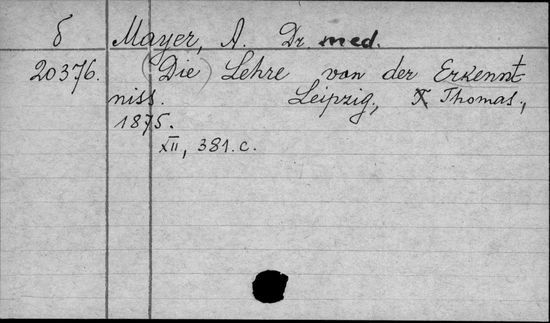 б Mayer, A. Dr. med.
20376. (Die) Lehre von der Erkennt-
niss. Leipzig, Thomas,
1875.
XII, 381. c.